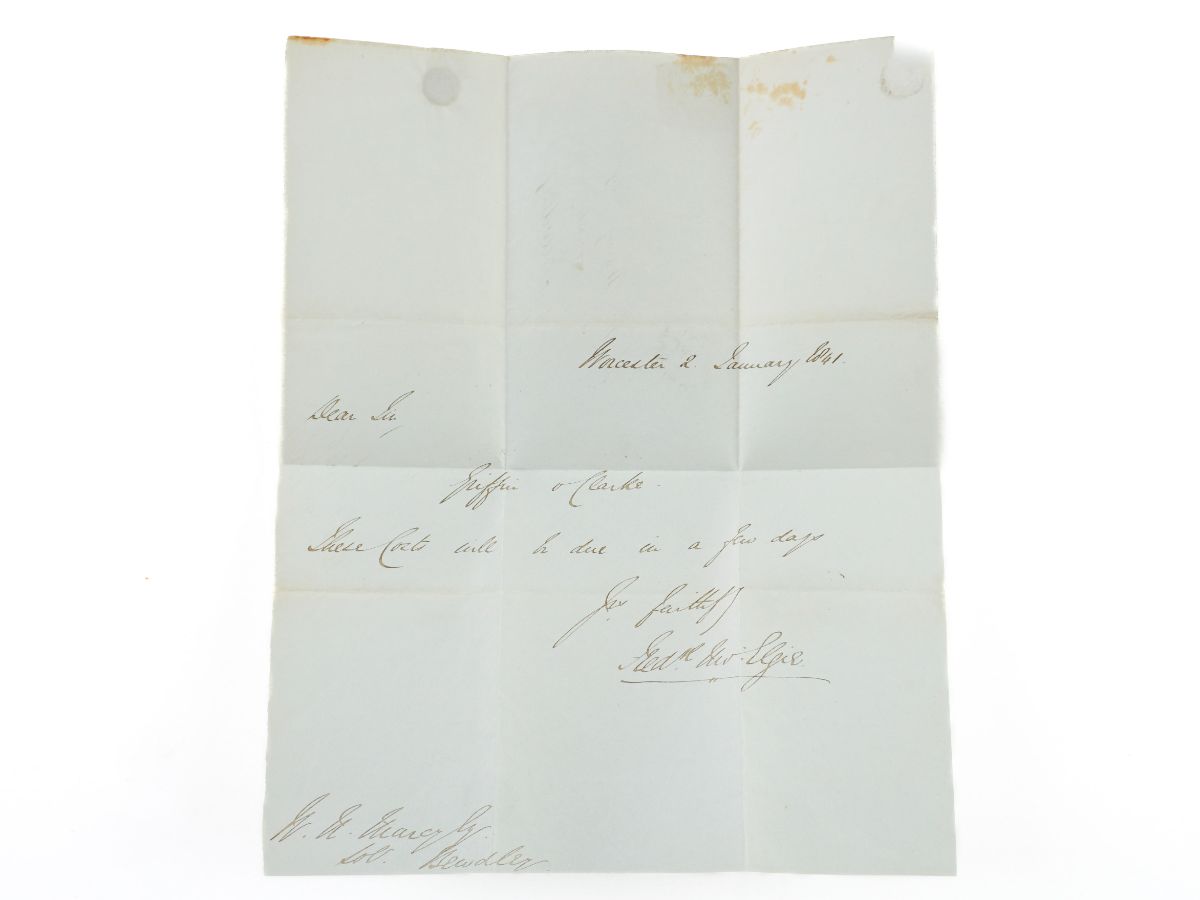 Worcester 2 January 1841.
Dear Sir,
Griffin v Clarke.
These Costs will be due in a few days
Yrs faithfy
Fredk Elgie
W. N. Marcy Esqr.
Solr. Bewdley